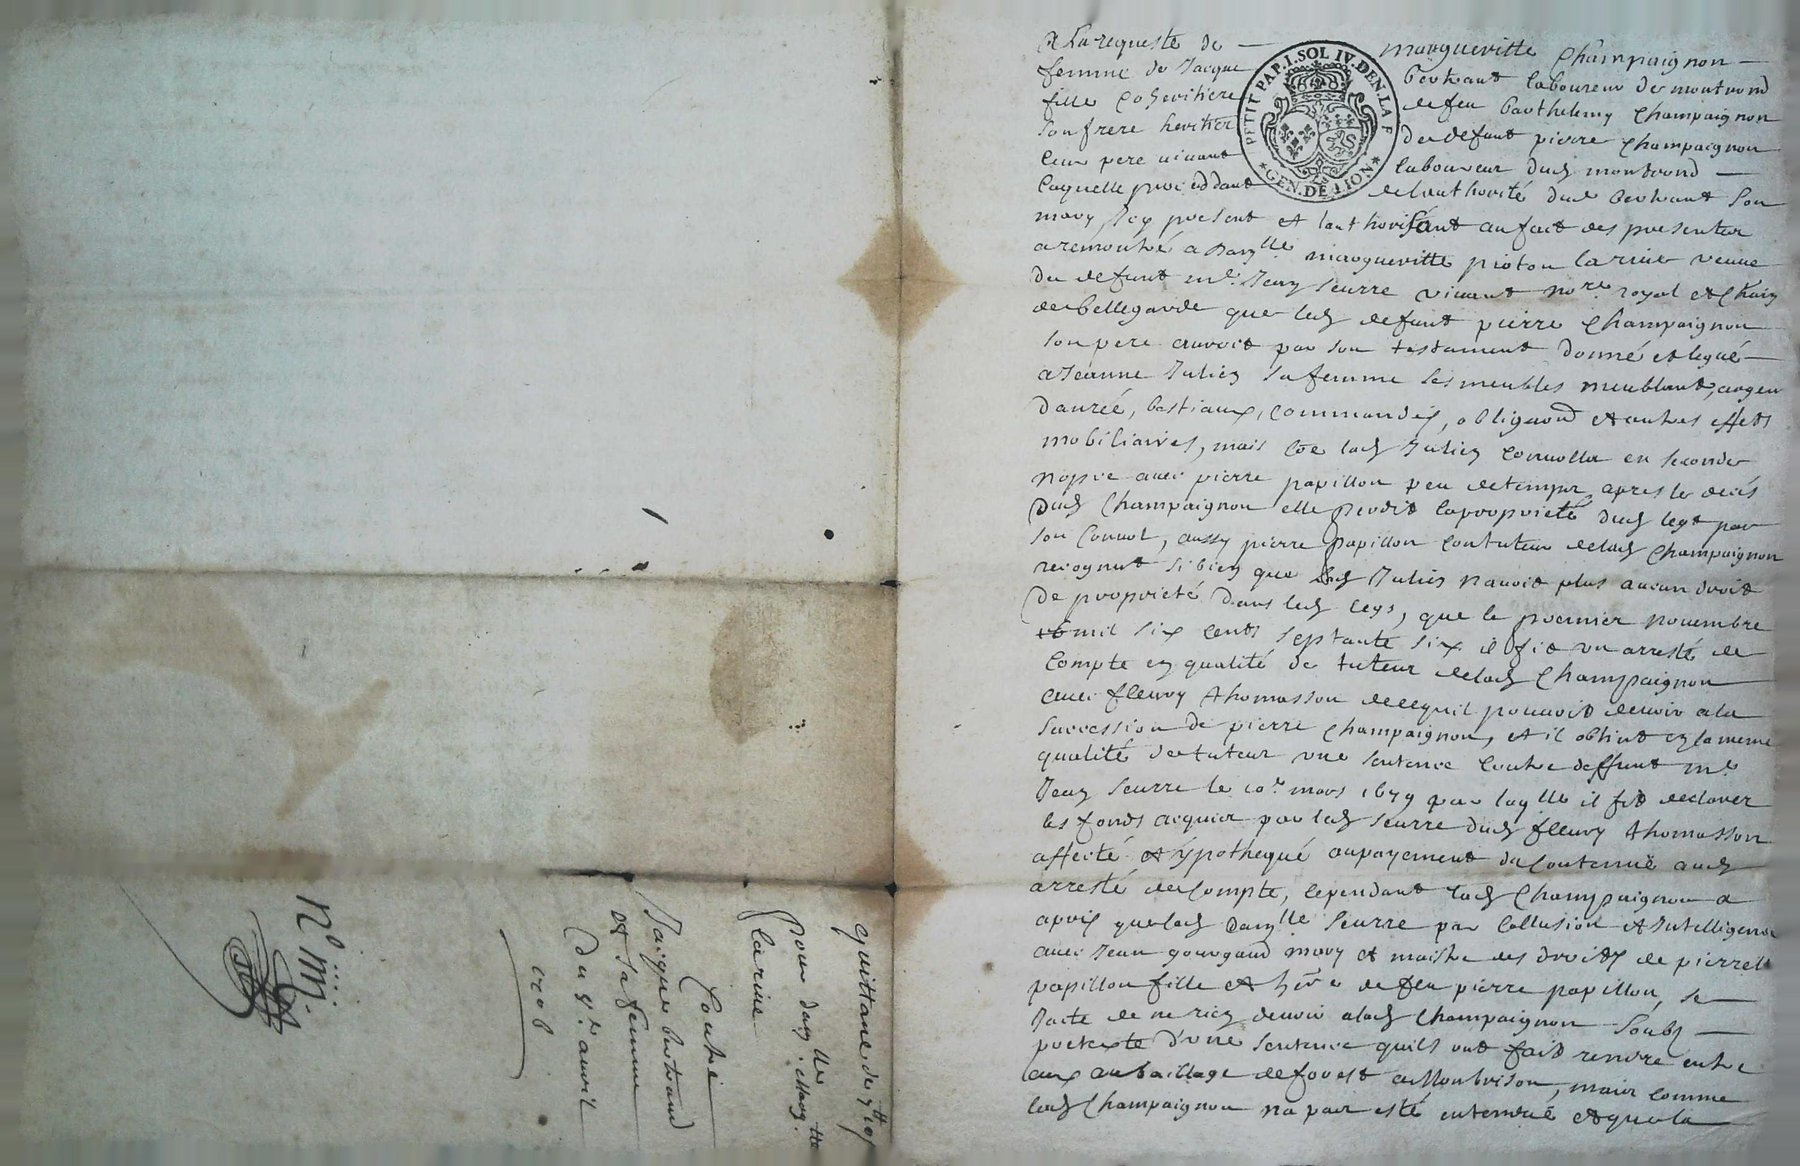 A La requeste de — margueritte Champaignon —
femme de Jacque bertrand laboureur de montrond
fille coheritiere de feu barthelemy Champaignon
son frere heritier de defunt pierre Champaignon
leur pere vivant laboureur dud montrond —
laquelle proceddant de lauthorité dud bertrand son
mary icy present et lauthorisant au fait des presentes
a remontré a dam^lle margueritte pioton larine veuve
du defunt m^e Jean seurre vivant no^re royal et
de bellegarde que led defunt pierre Champaignon
son pere auroit par son testament donné et legué —
a Jeanne Julien sa femme ses meubles meublant, argen
danrée, bestiaux, commandes, obligaõns et autres effets
mobiliaires, mais cõe lad Julien convolla en seconde
nopce avec pierre papillon peu de temps apres le decés
dud Champaignon elle perdit la proprieté dud legt par
son convol, aussy pierre papillon contuteur de lad Champaignon
recognut si bien que lad Julien n'avoit plus aucun droit
de proprieté dans led legs, que le premier novembre
mil six cents septante six il fit un arresté de
compte en qualité de tuteur de lad Champaignon
avec fleury thomasson de ce quil pouvoit devoir a la
succession de pierre Champaignon, et il obtint en la meme
qualité de tuteur une sentence contre deffunt m^e
Jean seurre le 10^e mars 1679 par laq^lle il fit declarer
les fonds acquier par led seurre dud fleury thomasson
affecté et ypothequé au payement du contenue aud
arresté de compte, cependant lad Champaignon a
apris que lad dam^lle seurre par collusion et Intelligence
avec Jean gourgaud mary et maistre des droits de pierrette
papillon fille et de feu pierre papillon, se
de ne rien devoir a lad Champaignon soubs —
pretexte d'une sentence quils ont fait rendre entre
eux au baillage de forest a Montbrison, mais comme
lad Champaignon na pas esté entendue et que la
quittance de
pour dam^lle Marg^tte
larine
Contre
Jacques bertrand
et sa femme
Du avril
1706
N° m